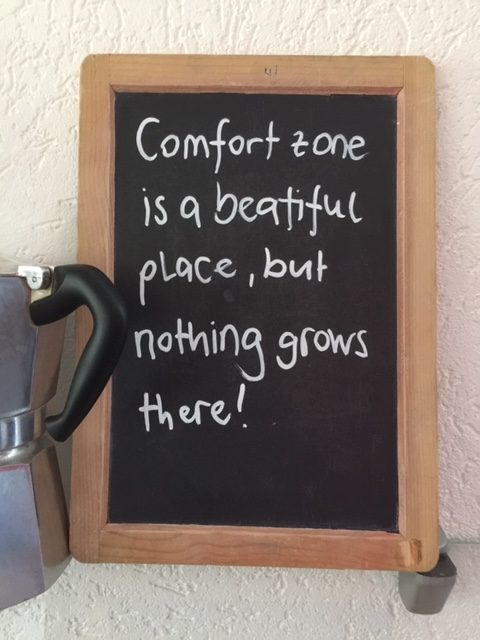 Comfort zone
is a beatiful
place, but
nothing grows
there!